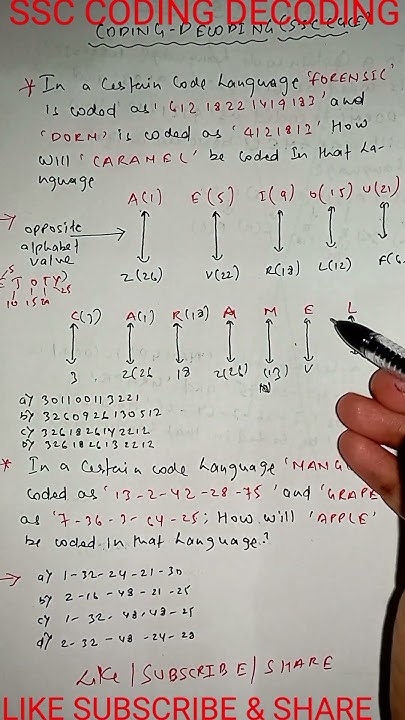 SSC CODING DECODING
CODING-DECODING (SSC CGL)
* In a Certain Code Language 'FORENSIC'
is coded as '61218221419183' and
'DORM' is coded as '4121813' How
will 'CARAMEL' be coded In that La-
nguage
A(1) E(5) I(9) O(15) U(21)
opposite
alphabet
value
Z(26) V(22) R(18) L(12) F(6
E J O T Y
5 10 15 20 25
C(3) A(1) R(18) A M E L
3 Z(26 18 Z(26) (13) V
a) 301100113221
b) 3260926130512
c) 3261826142212
D) 3261826132212
* In a Certain code language 'MANG
coded as '13-2-42-28-75' and 'GRAPE
as '7-36-3-64-25; How will 'APPLE'
be coded in that Language?
a) 1-32-24-21-30
b) 2-16-48-21-25
c) 1-32-48-48-25
d) 2-32-48-24-23
LIKE / SUBSCRIBE / SHARE
LIKE SUBSCRIBE & SHARE